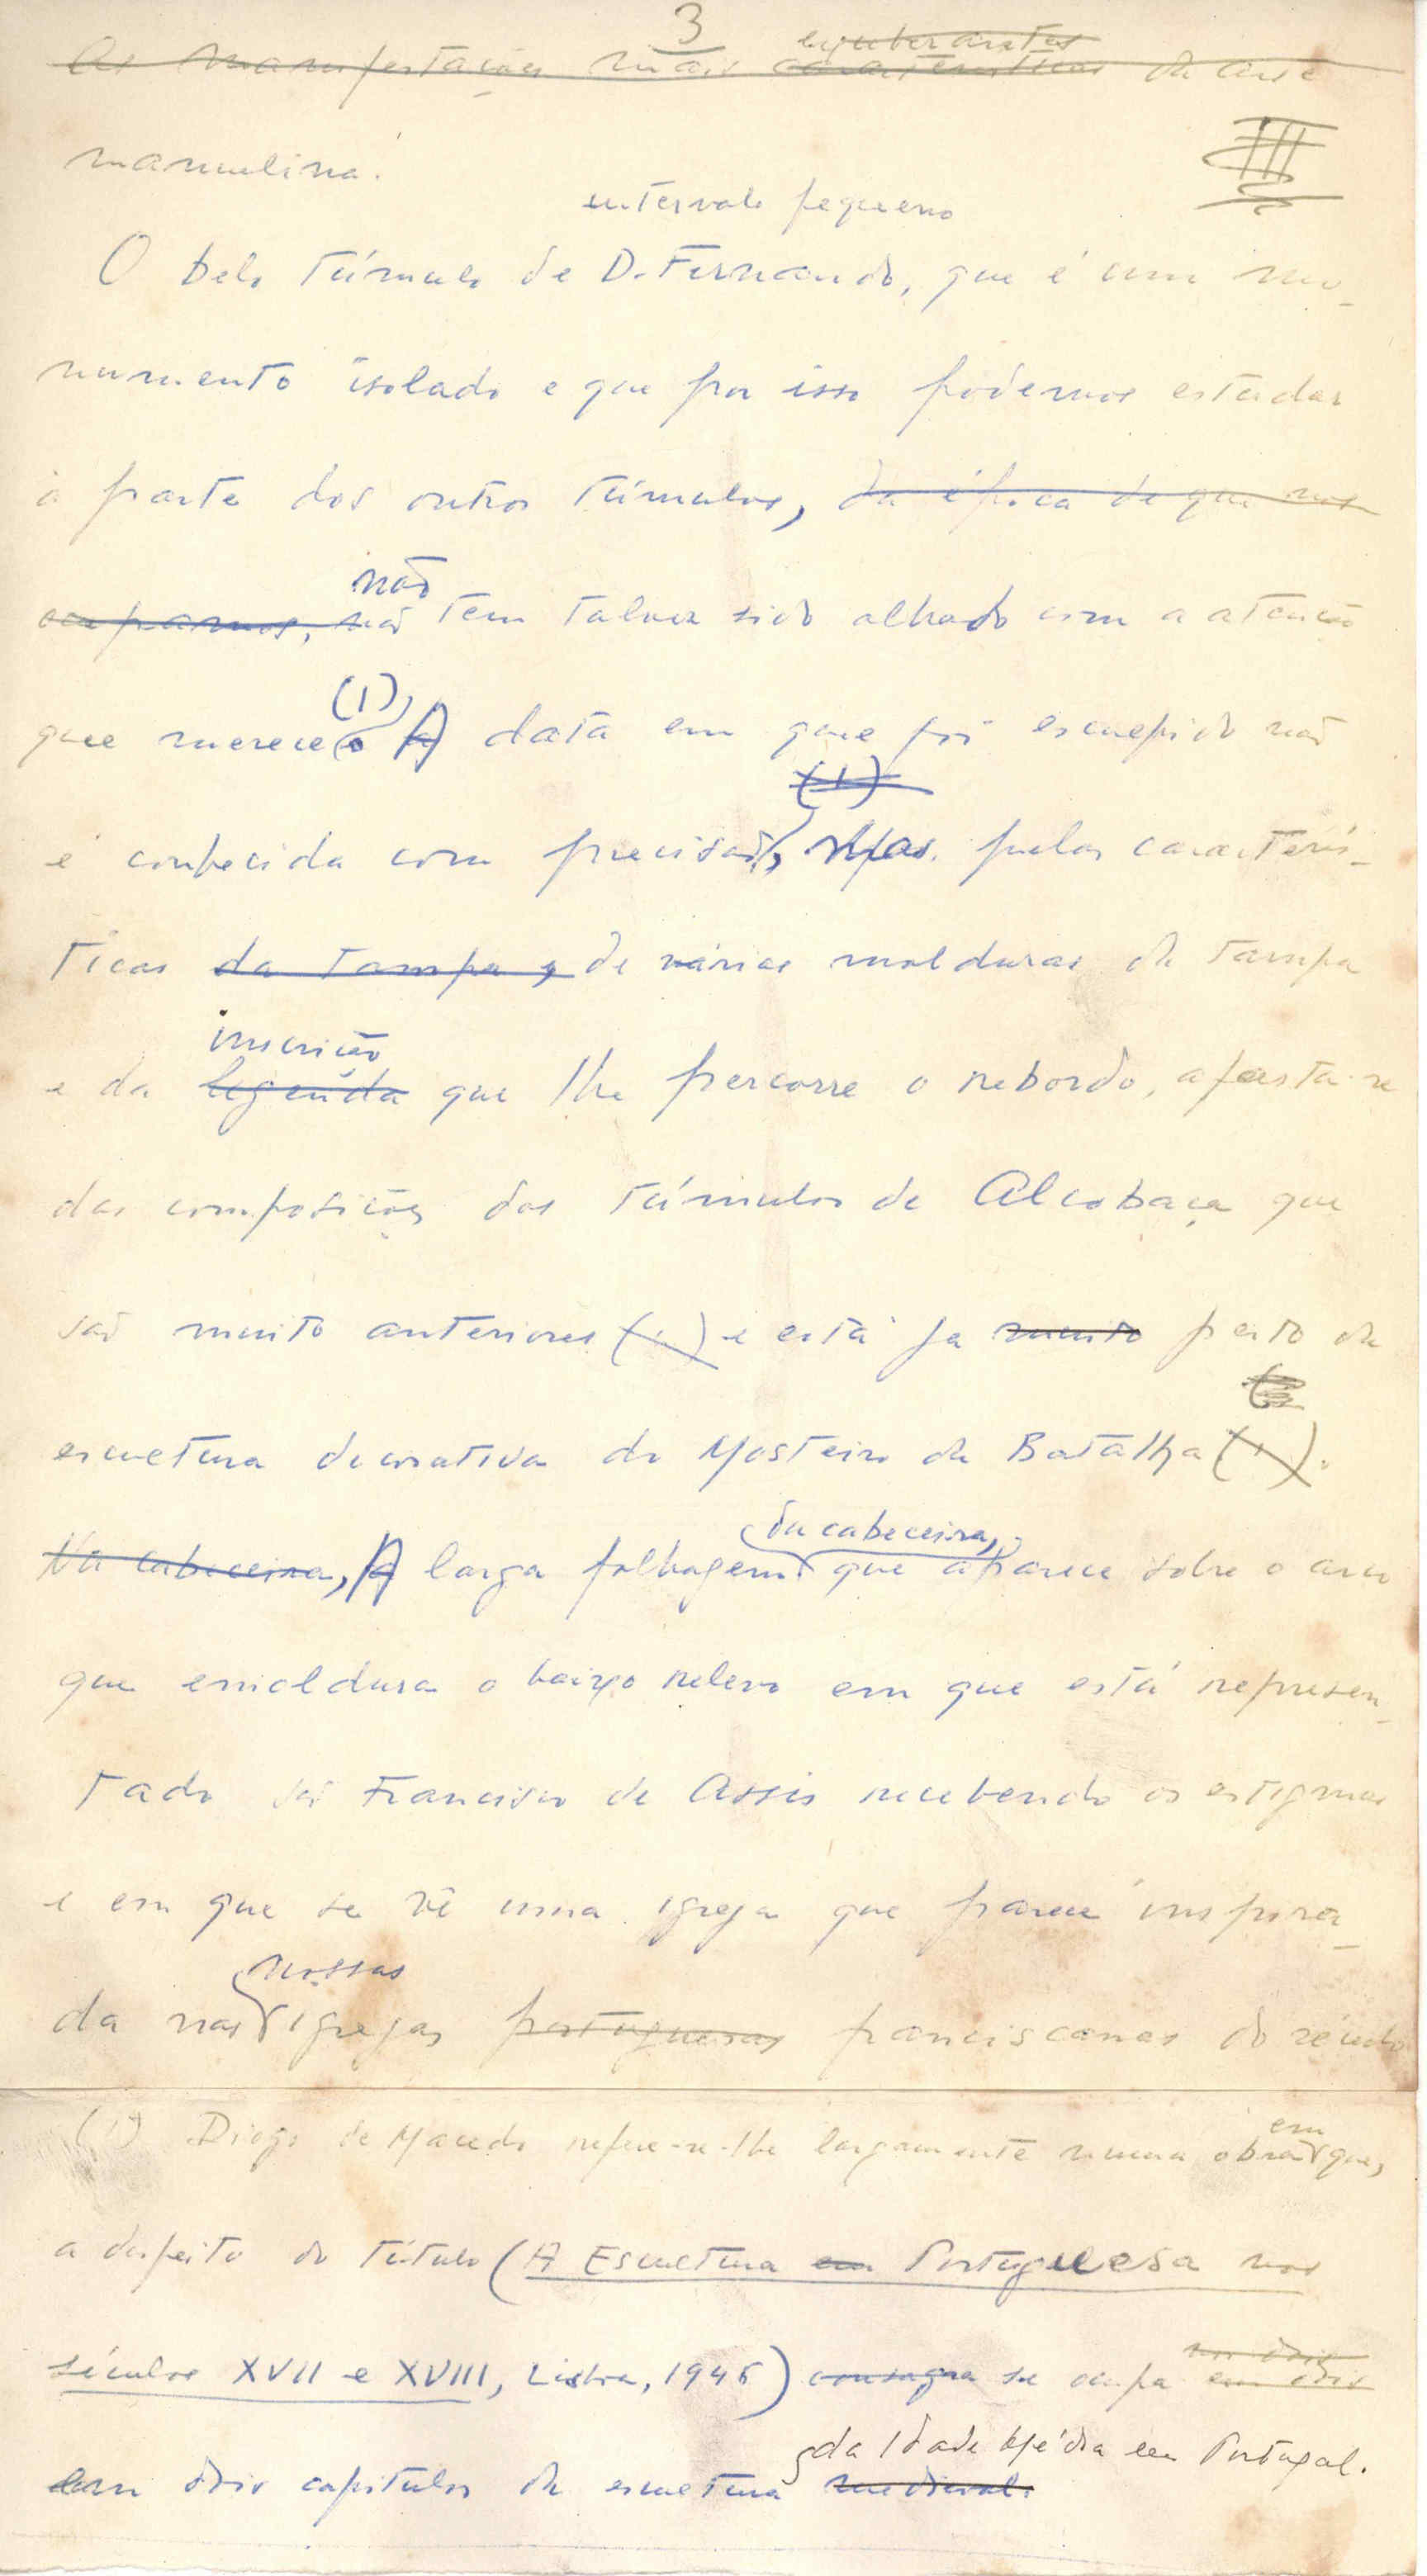 3
exuberantes
As manifestações mais características da arte
manuelina.
III
intervalo pequeno
O belo túmulo de D. Fernando, que é um mo-
numento isolado e que por isso podemos estudar
à parte dos outros túmulos, da época de que nos
não
ocupamos, não tem talvez sido olhado com a atenção
(1),
que merece. A data em que foi esculpido não
(1)
é conhecida com precisão, mas pelas caracterís-
ticas da tampa, de várias molduras da tampa
inscrição
e da legenda que lhe percorre o rebordo, afasta-se
das composições dos túmulos de Alcobaça que
são muito anteriores (1) e está já muito perto da
escultura decorativa do Mosteiro da Batalha (1).
da cabeceira,
Na cabeceira, A larga folhagem que aparece sobre o arco
que emoldura o baixo relevo em que está represen-
tado são Francisco de Assis recebendo os estigmas
e em que se vê uma igreja que parece inspira-
nossas
da nas igrejas portuguesas franciscanas do século
(1) Diogo de Macedo refere-se-lhe largamente numa obra
em
que,
a despeito do título (A Escultura em Portuguesa nos
séculos XVII e XVIII, Lisboa, 1945) consagra se ocupa em dois
nos dois
em dois capítulos da escultura medieval.
da Idade Média em Portugal.